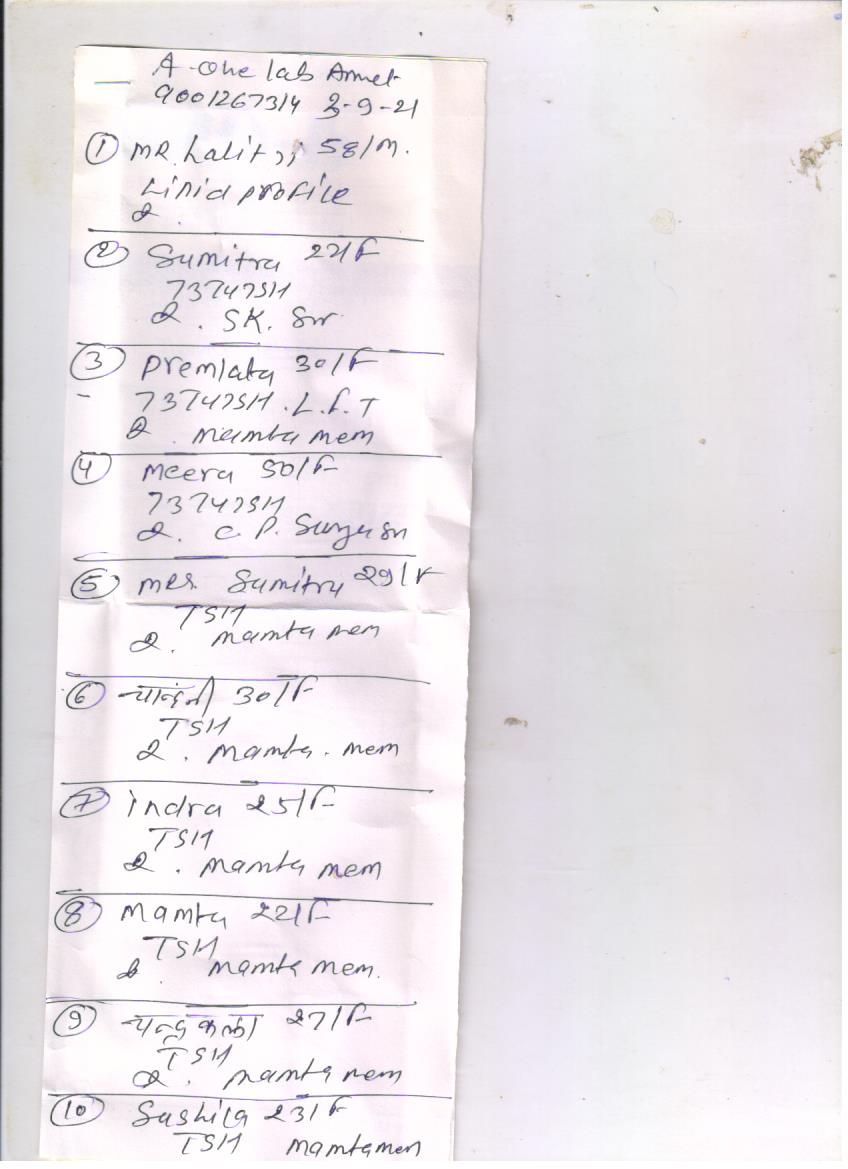 A-One lab Amet
9001267314 3-9-21
① MR. Lalit ji 58/M.
Lipid profile
② Sumitra 22/F
T3T4TSH
SK. Sir
③ Premlata 30/F
T3T4TSH. L.F.T
mamta mem
④ Meera 50/F
T3T4TSH
C.P. Surya Sir
⑤ MRS. Sumitra 29/F
TSH
mamta mem
⑥ चान्दनी 30/F
TSH
mamta. mem
⑦ indra 25/F
TSH
mamta mem
⑧ mamta 22/F
TSH
mamta mem.
⑨ चन्द्रकला 27/F
TSH
mamta mem
⑩ Sushila 23/F
TSH mamta mem